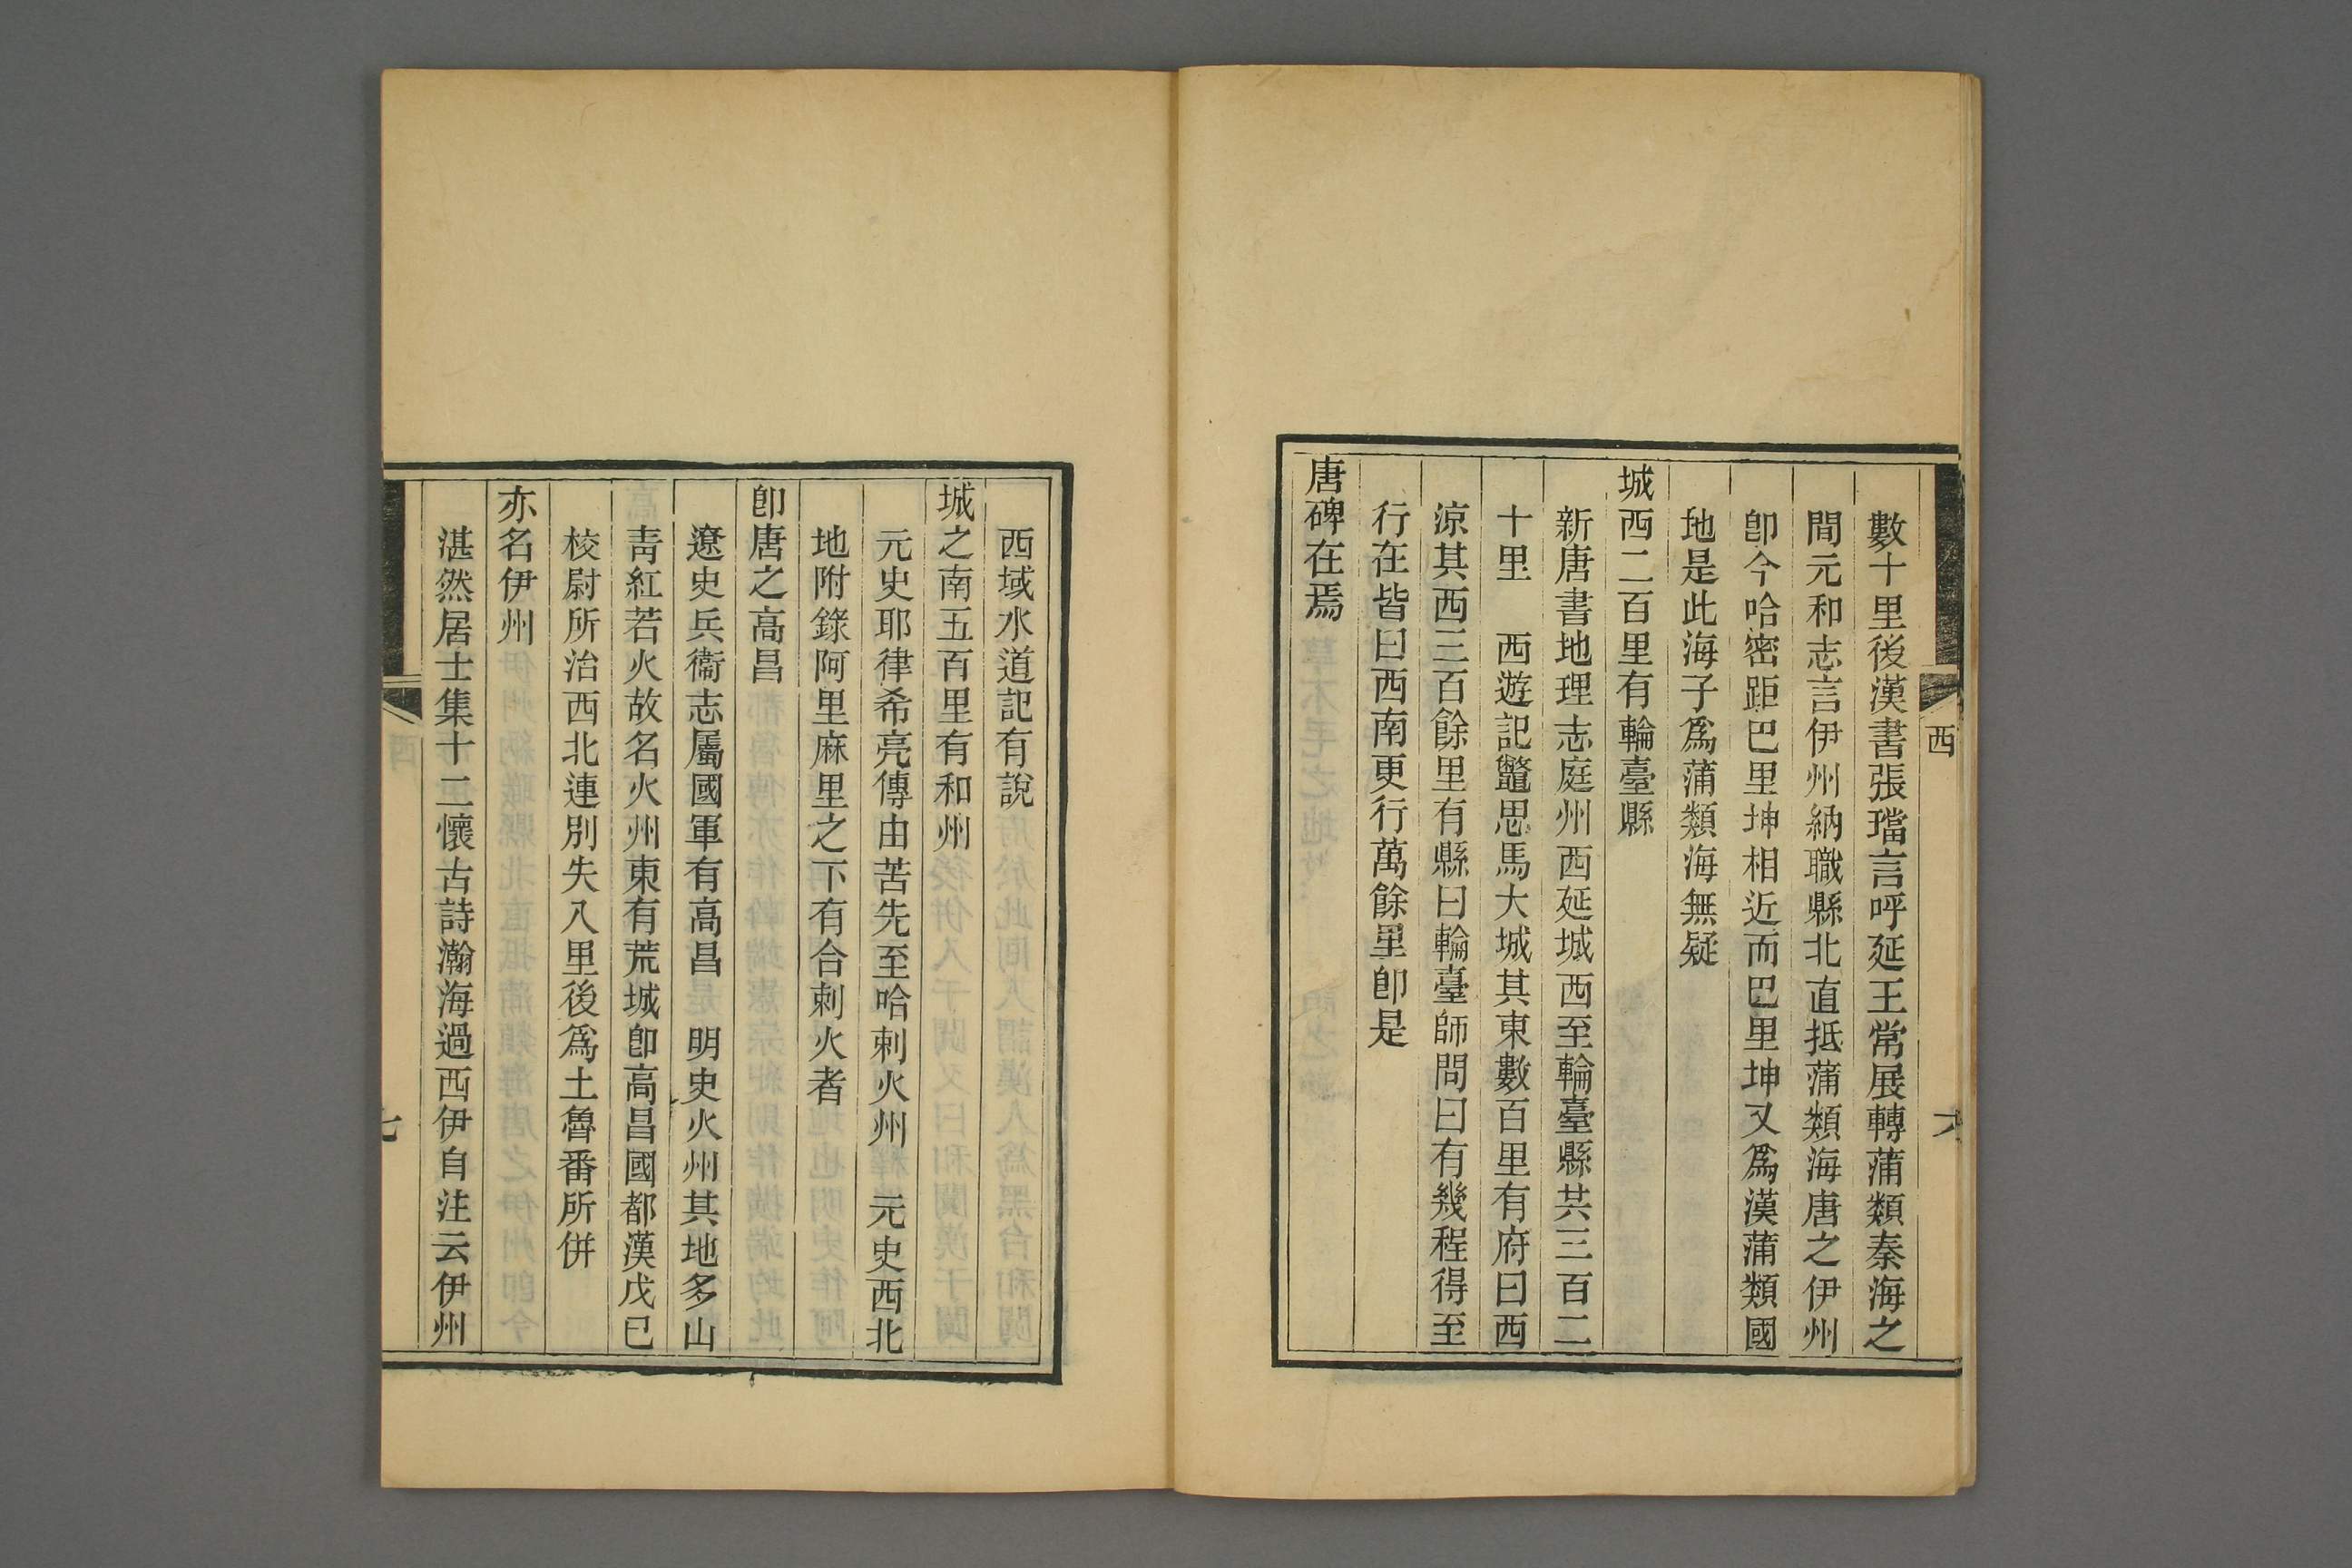 西
數十里後漢書張璫言呼延王常展轉蒲類秦海之
間元和志言伊州納職縣北直抵蒲類海唐之伊州
卽今哈密距巴里坤相近而巴里坤又爲漢蒲類國
地是此海子爲蒲類海無疑
城西二百里有輪臺縣
新唐書地理志庭州西延城西至輪臺縣共三百二
十里　西遊記鼈思馬大城其東數百里有府曰西
涼其西三百餘里有縣曰輪臺師問曰有幾程得至
行在皆曰西南更行萬餘里卽是
唐碑在焉
西域水道記有說
城之南五百里有和州
元史耶律希亮傳由苦先至哈剌火州　元史西北
地附錄阿里麻里之下有合剌火者
卽唐之高昌
遼史兵衞志屬國軍有高昌　明史火州其地多山
靑紅若火故名火州東有荒城卽高昌國都漢戊巳
校尉所治西北連別失八里後爲土魯番所併
亦名伊州
湛然居士集十二懷古詩瀚海過西伊自注云伊州